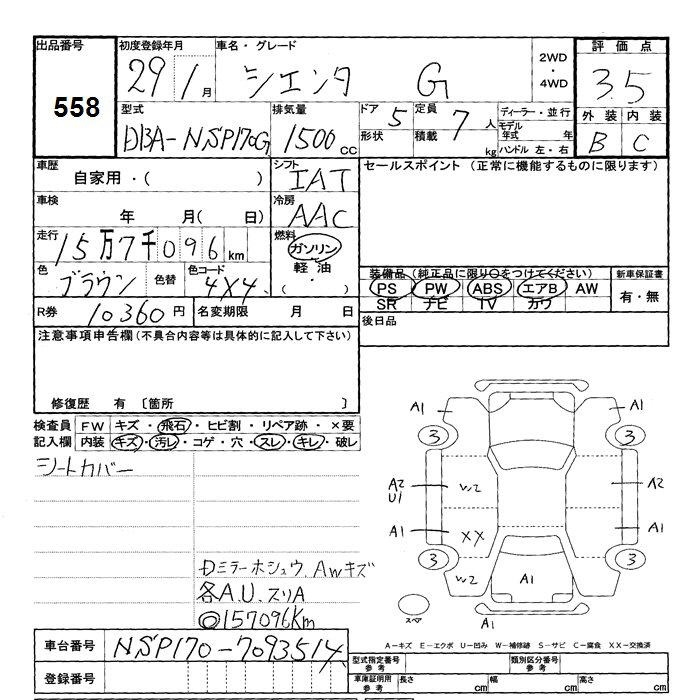 出品番号 初度登録年月 車名・グレード 2WD・4WD 評価点
558 29 1月 シエンタ G 3.5
型式 排気量 ドア 5 定員 7人 ディーラー・並行 外装 内装
DBA-NSP170G 1500cc 形状 積載 kg モデル年式 年 ハンドル 左・右 B C
車歴 自家用・( ) シフト IAT セールスポイント (正常に機能するものに限ります)
車検 年 月( 日) 冷房 AAC
走行 15万7千096km 燃料 ガソリン
軽油
・( )
色 ブラウン 色替 色コード 4X4
装備品 (純正品に限り○をつけてください) 新車保証書
PS PW ABS エアB AW 有・無
SR ナビ TV カワ
R券 10360円 名変期限 月 日 後日品
注意事項申告欄(不具合内容等は具体的に記入して下さい)
修復歴 有 〔箇所 〕
検査員 FW キズ・飛石・ヒビ割・リペア跡・×要
記入欄 内装 キズ・汚レ・コゲ・穴・スレ・キレ・破レ
シートカバー
Dミラーホシュウ、AWキズ
各A.U.スリA
◎157096Km
A1 A1
3 3
A2 U1 W2 A2
A1 XX A1
3 W2 A1 3
スペア A1
A-キズ E-エクボ U-凹み W-補修跡 S-サビ C-腐食 XX-交換済
車台番号 NSP170-7093514
型式指定番号 参考 類別区分番号 参考
登録番号 車庫証明用 参考 長さ cm 幅 cm 高さ cm